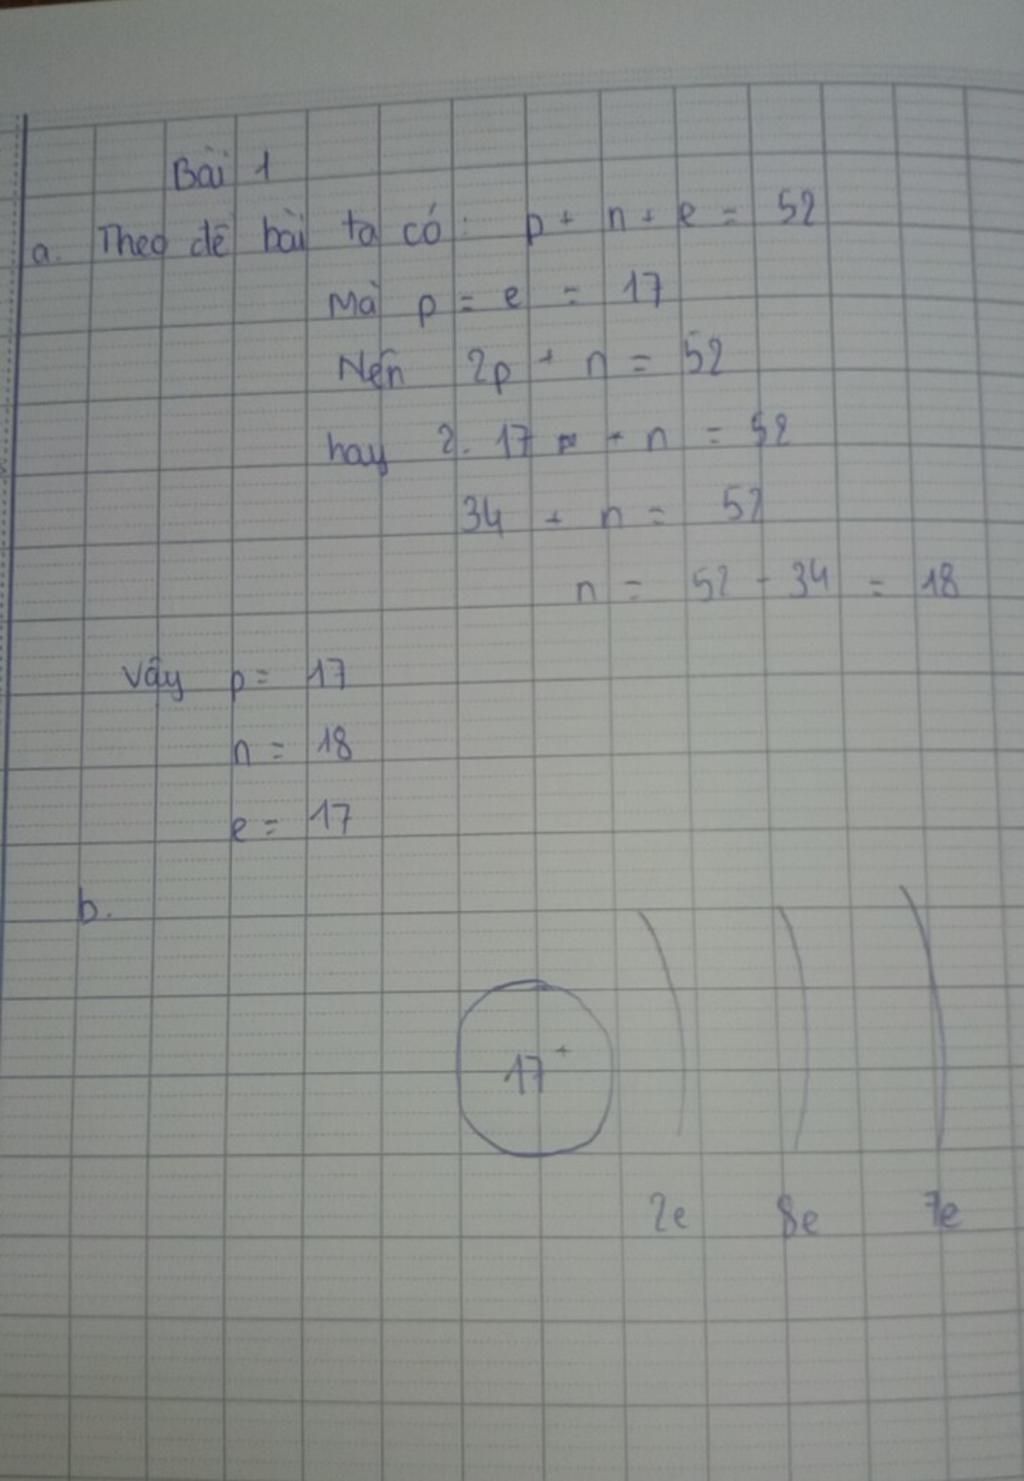 Bài 1
a. Theo đề bài ta có: p + n + e = 52
Mà p = e = 17
Nên 2p + n = 52
hay 2. 17 + n = 52
34 + n = 52
n = 52 - 34 = 18
Vậy p = 17
n = 18
e = 17
b.
17+
2e 8e 7e